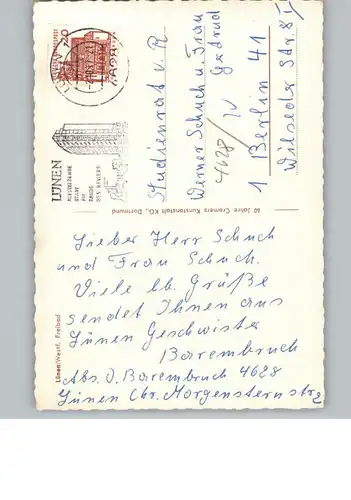 LÜNEN
AUFSTREBENDE
STADT
AM
RANDE
DES REVIERS
Studienrat v. R
Werner Schuch u. Frau
Gertrud
4628 / IV
1 Berlin 41
Wilseder Str. 8 I
60 Jahre Cramers Kunstanstalt KG., Dortmund
Lünen/Westf. Freibad
Lieber Herr Schuch
und Frau Schuch.
Viele lb. Grüße
sendet Ihnen aus
Lünen Geschwister
Barembruch
Abs. D. Barembruch 4628
Lünen Chr. Morgensternstr